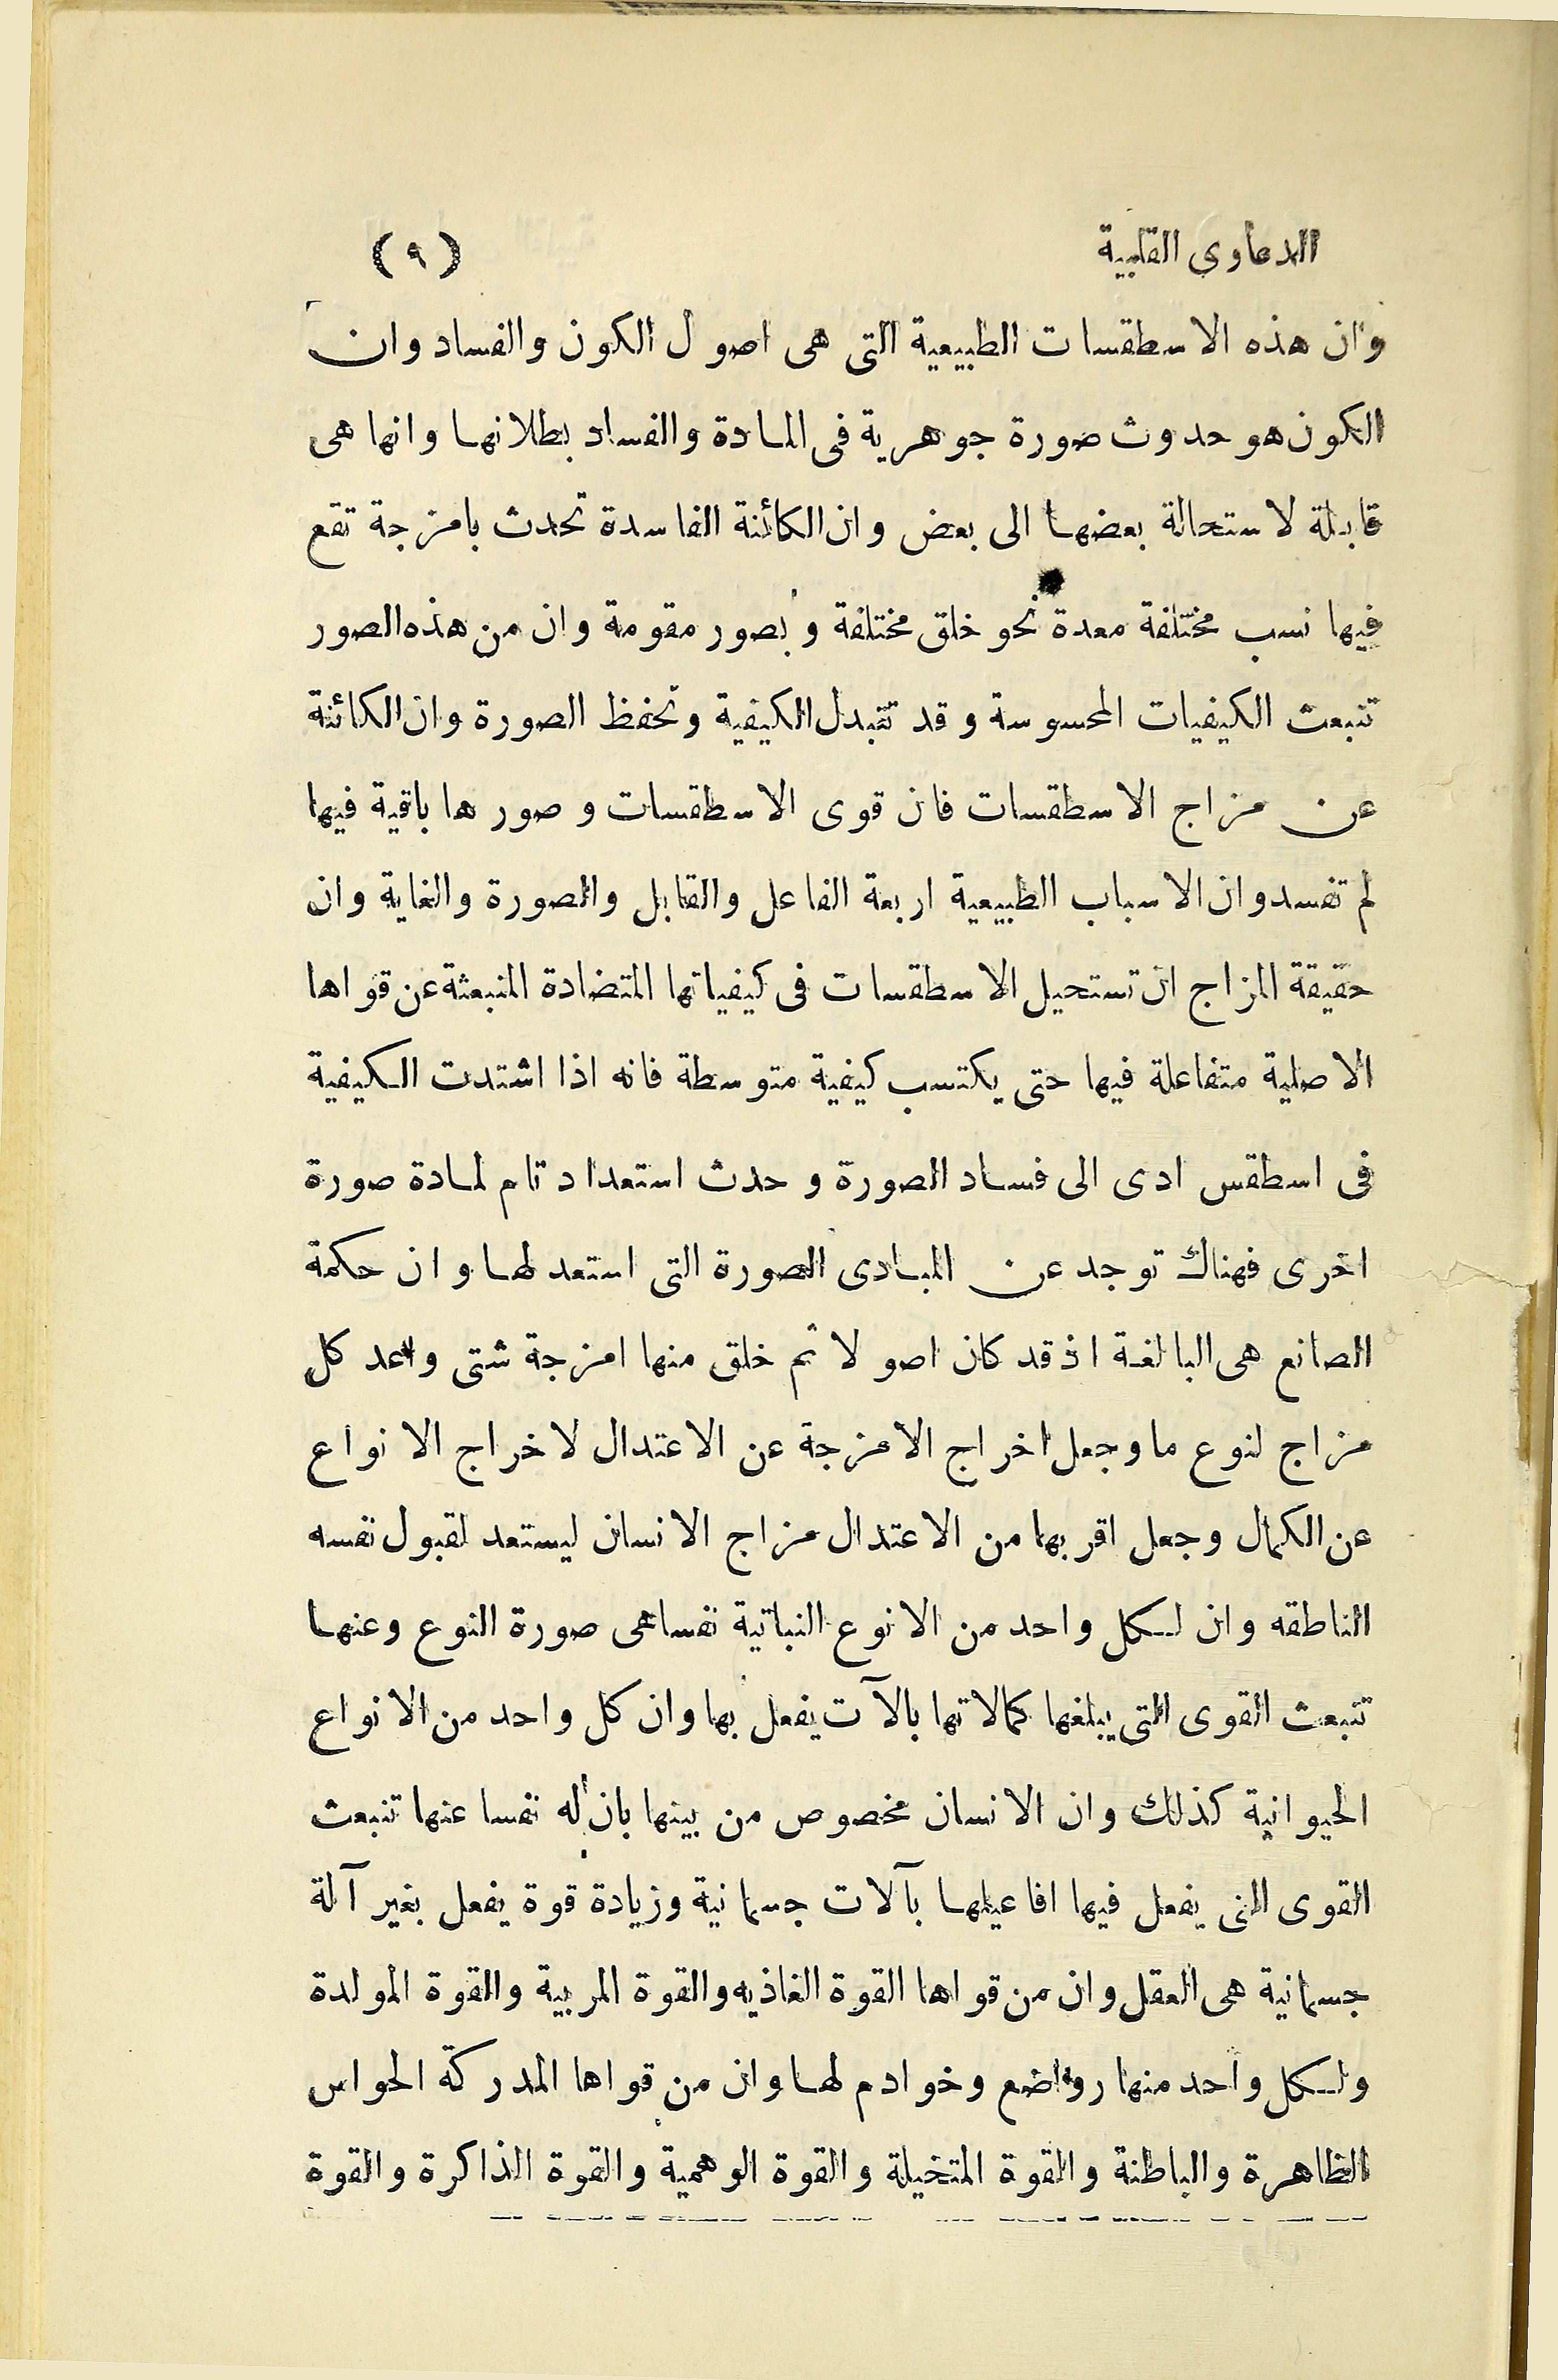 الدعاوى القلبية (٩)
وان هذه الاسطقسات الطبيعية التى هى اصول الكون والفساد وان
الكون هو حدوث صورة جوهرية فى المادة والفساد بطلانها وانها هى
قابلة لاستحالة بعضها الى بعض وان الكائنة الفاسدة تحدث بامزجة تقع
فيها نسب مختلفة معدة نحو خلق مختلفة وبصور مقومة وان من هذه الصور
تنبعث الكيفيات المحسوسة وقد تتبدل الكيفية وتحفظ الصورة وان الكائنة
عن مزاج الاسطقسات فان قوى الاسطقسات وصورها باقية فيها
لم تفسد وان الاسباب الطبيعية اربعة الفاعل والقابل والصورة والغاية وان
حقيقة المزاج ان تستحيل الاسطقسات فى كيفياتها المتضادة المنبعثة عن قواها
الاصلية متفاعلة فيها حتى يكتسب كيفية متوسطة فانه اذا اشتدت الكيفية
فى اسطقس ادى الى فساد الصورة وحدث استعداد تام لمادة صورة
اخرى فهناك توجد عن المبادى الصورة التى استعد لها وان حكمة
الصانع هى البالغة اذ قد كان اصولا ثم خلق منها امزجة شتى واعد كل
مزاج لنوع ما وجعل اخراج الامزجة عن الاعتدال لاخراج الانواع
عن الكمال وجعل اقربها من الاعتدال مزاج الانسان ليستعد لقبول نفسه
الناطقه وان لكل واحد من الانوع النباتية نفسا هى صورة النوع وعنها
تنبعث القوى التى يبلغها كمالاتها بالآت يفعل بها وان كل واحد من الانواع
الحيوانية كذلك وان الانسان مخصوص من بينها بان له نفسا عنها تنبعث
القوى التى يفعل فيها افاعيلها بآلات جسمانية وزيادة قوة يفعل بغير آلة
جسمانية هى العقل وان من قواها القوة الغاذيه والقوة المربية والقوة المولدة
ولكل واحد منها رواضع وخوادم لها وان من قواها المدركة الحواس
الظاهرة والباطنة والقوة المتخيلة والقوة الوهمية والقوة الذاكرة والقوة